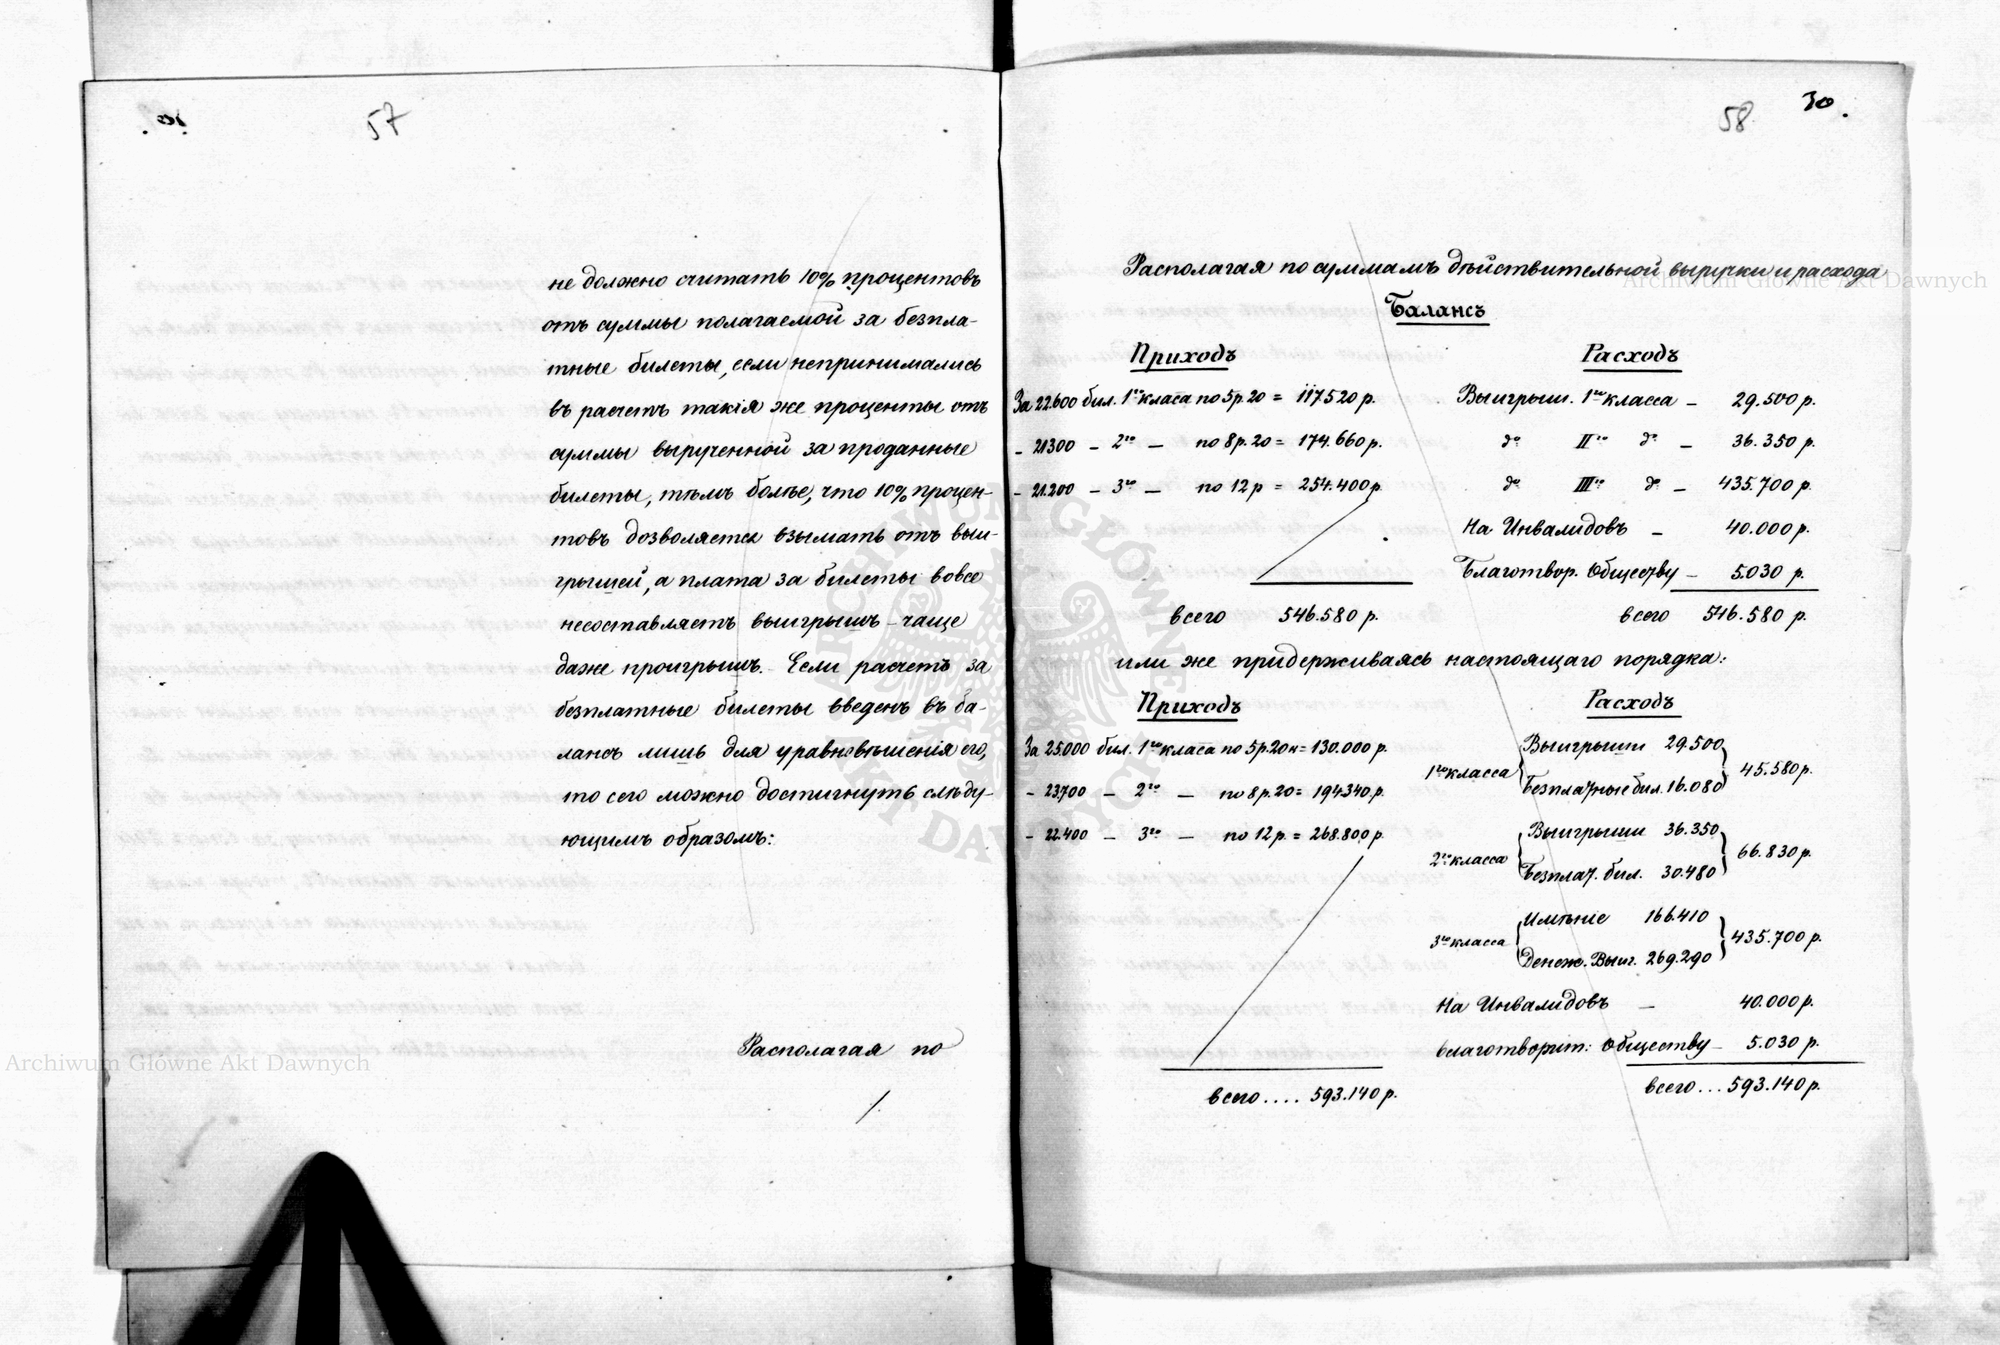 57
не должно считать 10% процентовъ
отъ суммы полагаемой за безпла-
тные билеты, если непринимались
въ расчетъ такія же проценты отъ
суммы вырученной за проданные
билеты, тѣмъ болѣе, что 10% процен-
товъ дозволяется взымать отъ выи-
грышей, а плата за билеты вовсе
несоставляетъ выигрышъ – чаще
даже проигрышъ. Если расчетъ за
безплатные билеты введенъ въ ба-
лансъ лишь для уравновѣшенія его,
то сего можно достигнуть слѣду-
ющимъ образомъ:
Располагая по
58 30.
Располагая по суммамъ дѣйствительной выручки и расхода
Балансъ
Приходъ Расходъ
За 22.600 бил. 1го класса по 5р.20 = 117520 р. Выигрыш. 1го класса – 29.500 р.
– 21300 – 2го – по 8р.20 = 174.660 р. до IIго до – 36.350 р.
– 21.200 – 3го – по 12 р = 254.400 р. до IIIго до – 435.700 р.
На Инвалидовъ – 40.000 р.
Благотвор. Обществу – 5.030 р.
всего 546.580 р. всего 546.580 р.
или же придерживаясь настоящаго порядка:
Приходъ Расходъ
За 25.000 бил. 1го класса по 5р.20к = 130.000 р. 1го класса Выигрыши 29.500 Безплатные бил. 16.080 45.580 р.
– 23.700 – 2го – по 8р.20 = 194340 р.
– 22.400 – 3го – по 12р. = 268.800 р. 2го класса Выигрыши 36.350 Безплат. бил. 30.480 66.830 р.
3го класса Имѣніе 166.410 Денеж. Выиг. 269.290 435.700 р.
На Инвалидовъ – 40.000 р.
благотворит: Обществу – 5.030 р.
всего .... 593.140 р. всего ... 593.140 р.
Archiwum Główne Akt Dawnych
Archiwum Główne Akt Dawnych
ARCHIWUM GŁÓWNE AKT DAWNYCH